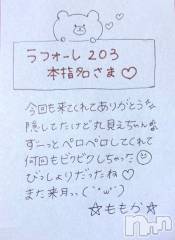 ラフォーレ 203
本指名さま♡
今回も来てくれてありがとうな
隠してたけど丸見えちゃん
ずーっとペロペロしてくれて
何回もビクビクしちゃった
びっしょりだったね♡
また来月っ(´°ω°`)
☆ももか☆